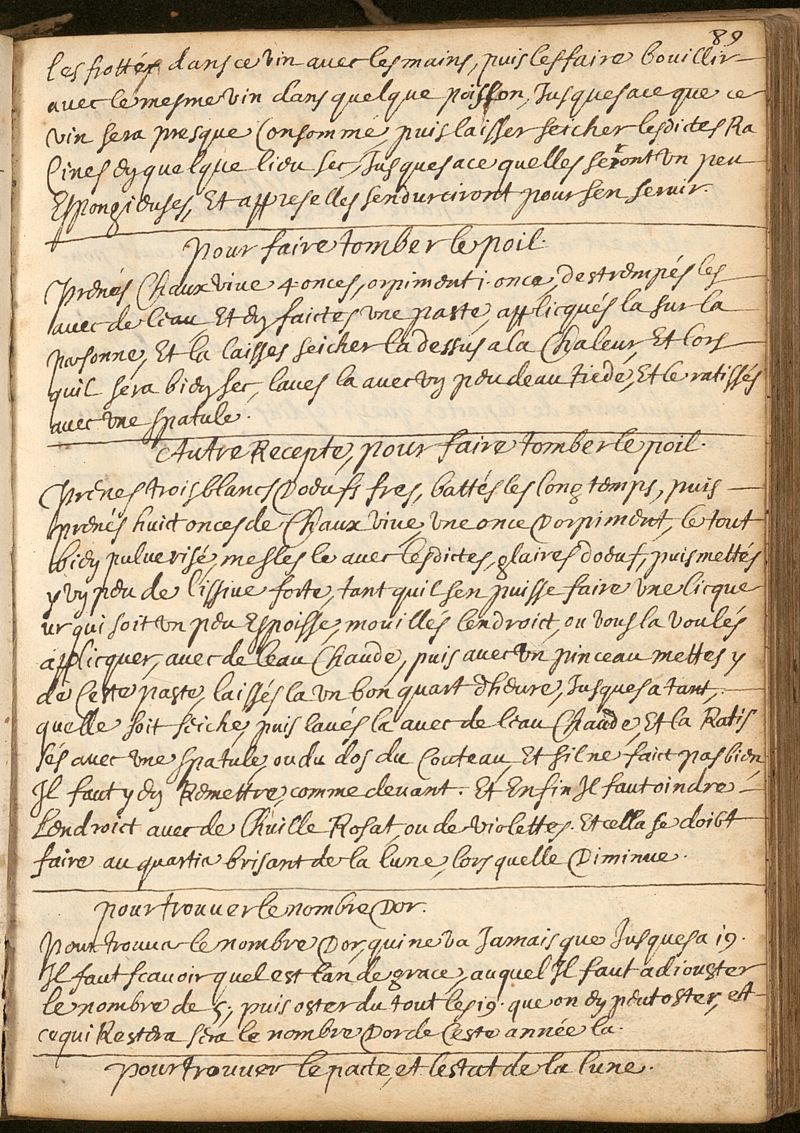 89
les frottés dans ce vin avec les mains, puis les faire bouillir
avec le mesme vin dans quelque poisson, Jusques a ce que ce
vin sera presque Consommé, puis laisser seicher lesdictes Ra
Cines en quelque lieu sec, Jusques a ce quelles seront un peu
Espongieuses, Et appres elles sendurciront pour sen servir.
Pour faire tomber le poil.
Prenés Chaux vive 4 onces, orpiment i once, destrempés les
avec de leau, Et en faictes une paste, applicqués la sur la
personne, Et la laisses seicher la dessus a la Chaleur, Et lors
quil sera bien sec, laves la avec un peu deau tiede, Et le ratissés
avec une spatule.
Autre Recepte, pour faire tomber le poil.
Prenes trois blancs Doeufs fres, battés les long temps, puis
prenés huict onces de Chaux vive, une once Dorpiment, le tout
bien pulverisé, mesles le avec lesdictes, glaires doeuf, puis mettés
y un peu de lissive forte, tant quil sen puisse faire une licque
ur qui soit un peu Espoisse, mouillés lendroict, ou vous la voulés
applicquer, avec de leau Chaude, puis avec un pinceau mettes y
de Ceste paste, laissés la un bon quart dheure, Jusques a tant,
quelle soit seiche, puis lavés la avec de leau Chaude, Et la Ratis
sés avec une spatule, ou du dos du Couteau, Et sil ne faict pas bien,
Il faut y en Remettre, comme devant. Et Enfin Il faut oindre
Lendroict avec de Lhuille Rosat, ou de violettes. Et cella se doibt
faire au quartier brisant de la lune, lors quelle Diminue.
pour trouver le nombre Dor.
Pour trouver le nombre Dor, qui ne va Jamais que Jusques a 19.
Il faut scavoir quel est lan de grace, auquel Il faut adiouster
le nombre de 5, puis oster du tout les 19. que on en peut oster, et
ce qui Restera sera le nombre Dor de Ceste année la.
Pour trouver lepacte, et lestat de la lune.